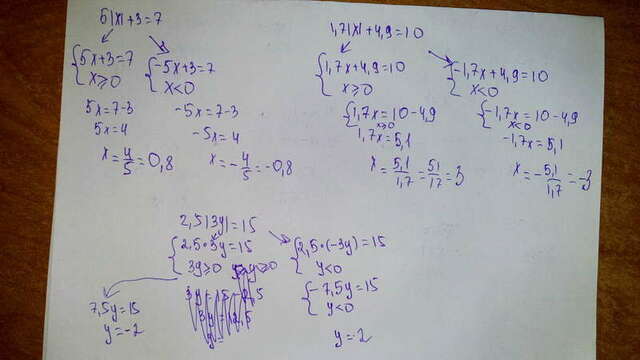 5|x|+3=7
{5x+3=7
x≥0
5x=7-3
5x=4
x=4/5=0,8
{-5x+3=7
x<0
-5x=7-3
-5x=4
x=-4/5=-0,8
1,7|x|+4,9=10
{1,7x+4,9=10
x≥0
{1,7x=10-4,9
x≥0
1,7x=5,1
x=5,1/1,7=51/17=3
{-1,7x+4,9=10
x<0
{-1,7x=10-4,9
x<0
-1,7x=5,1
x=-5,1/1,7=-3
2,5|3y|=15
{2,5·3y=15
3y≥0
7,5y=15
y=-2
{2,5·(-3y)=15
y<0
{-7,5y=15
y<0
y=-2